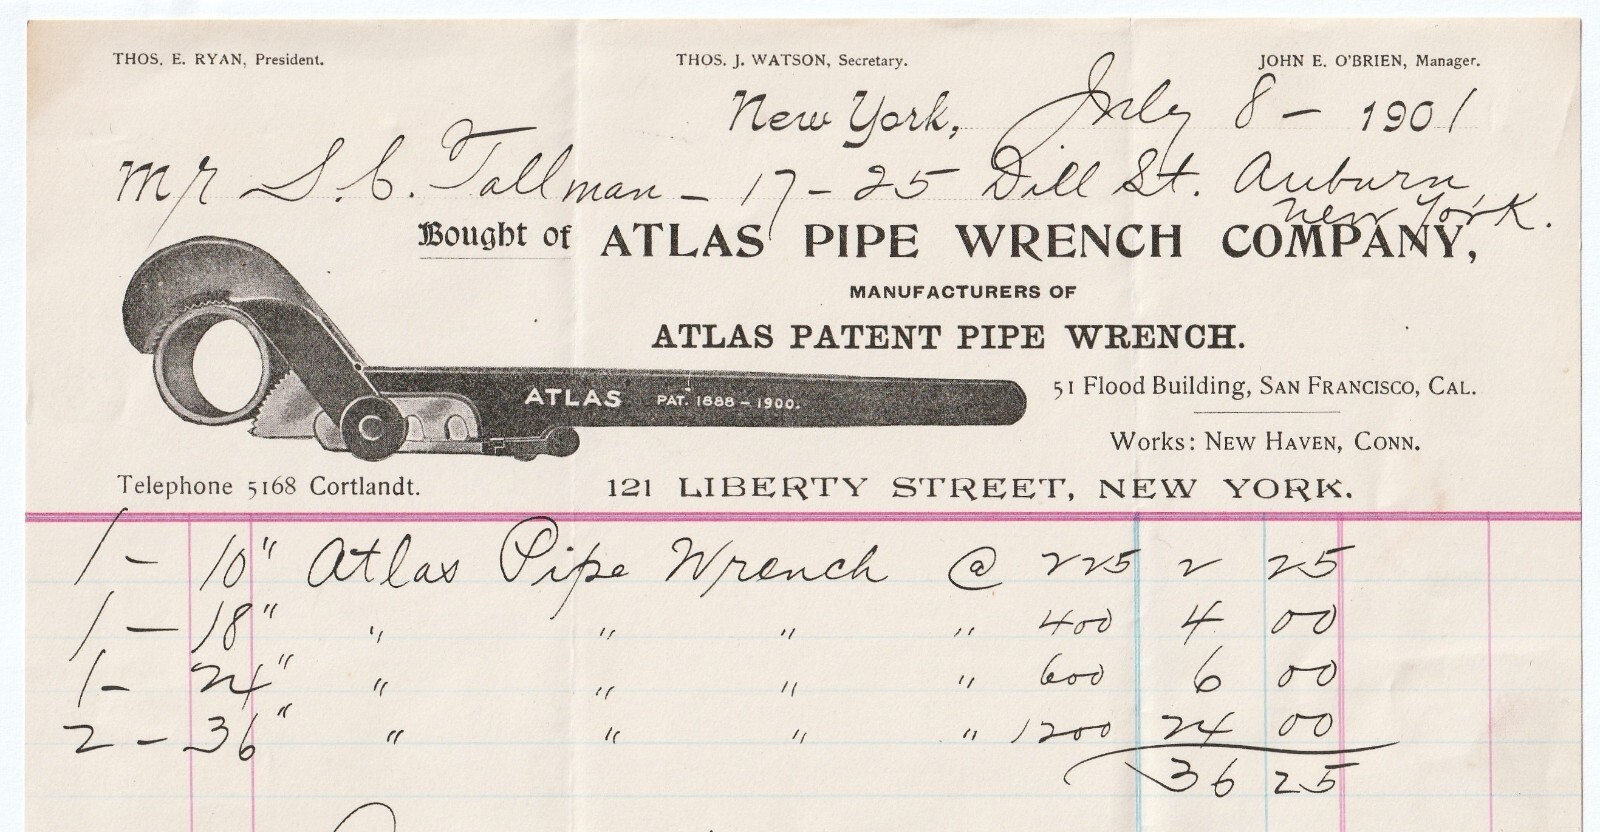 THOS. E. RYAN, President. THOS. J. WATSON, Secretary. JOHN E. O'BRIEN, Manager.
New York, July 8 - 1901
Mr S. C. Tallman - 17-25 Dill St. Auburn
New York.
Bought of ATLAS PIPE WRENCH COMPANY,
MANUFACTURERS OF
ATLAS PATENT PIPE WRENCH.
ATLAS PAT. 1888 - 1900.
51 Flood Building, SAN FRANCISCO, CAL.
Works: NEW HAVEN, CONN.
Telephone 5168 Cortlandt. 121 LIBERTY STREET, NEW YORK.
1 - 10" Atlas Pipe Wrench @ 225 2 25
1 - 18" " " " " 400 4 00
1 - 24" " " " " 600 6 00
2 - 36" " " " " 1200 24 00
36 25